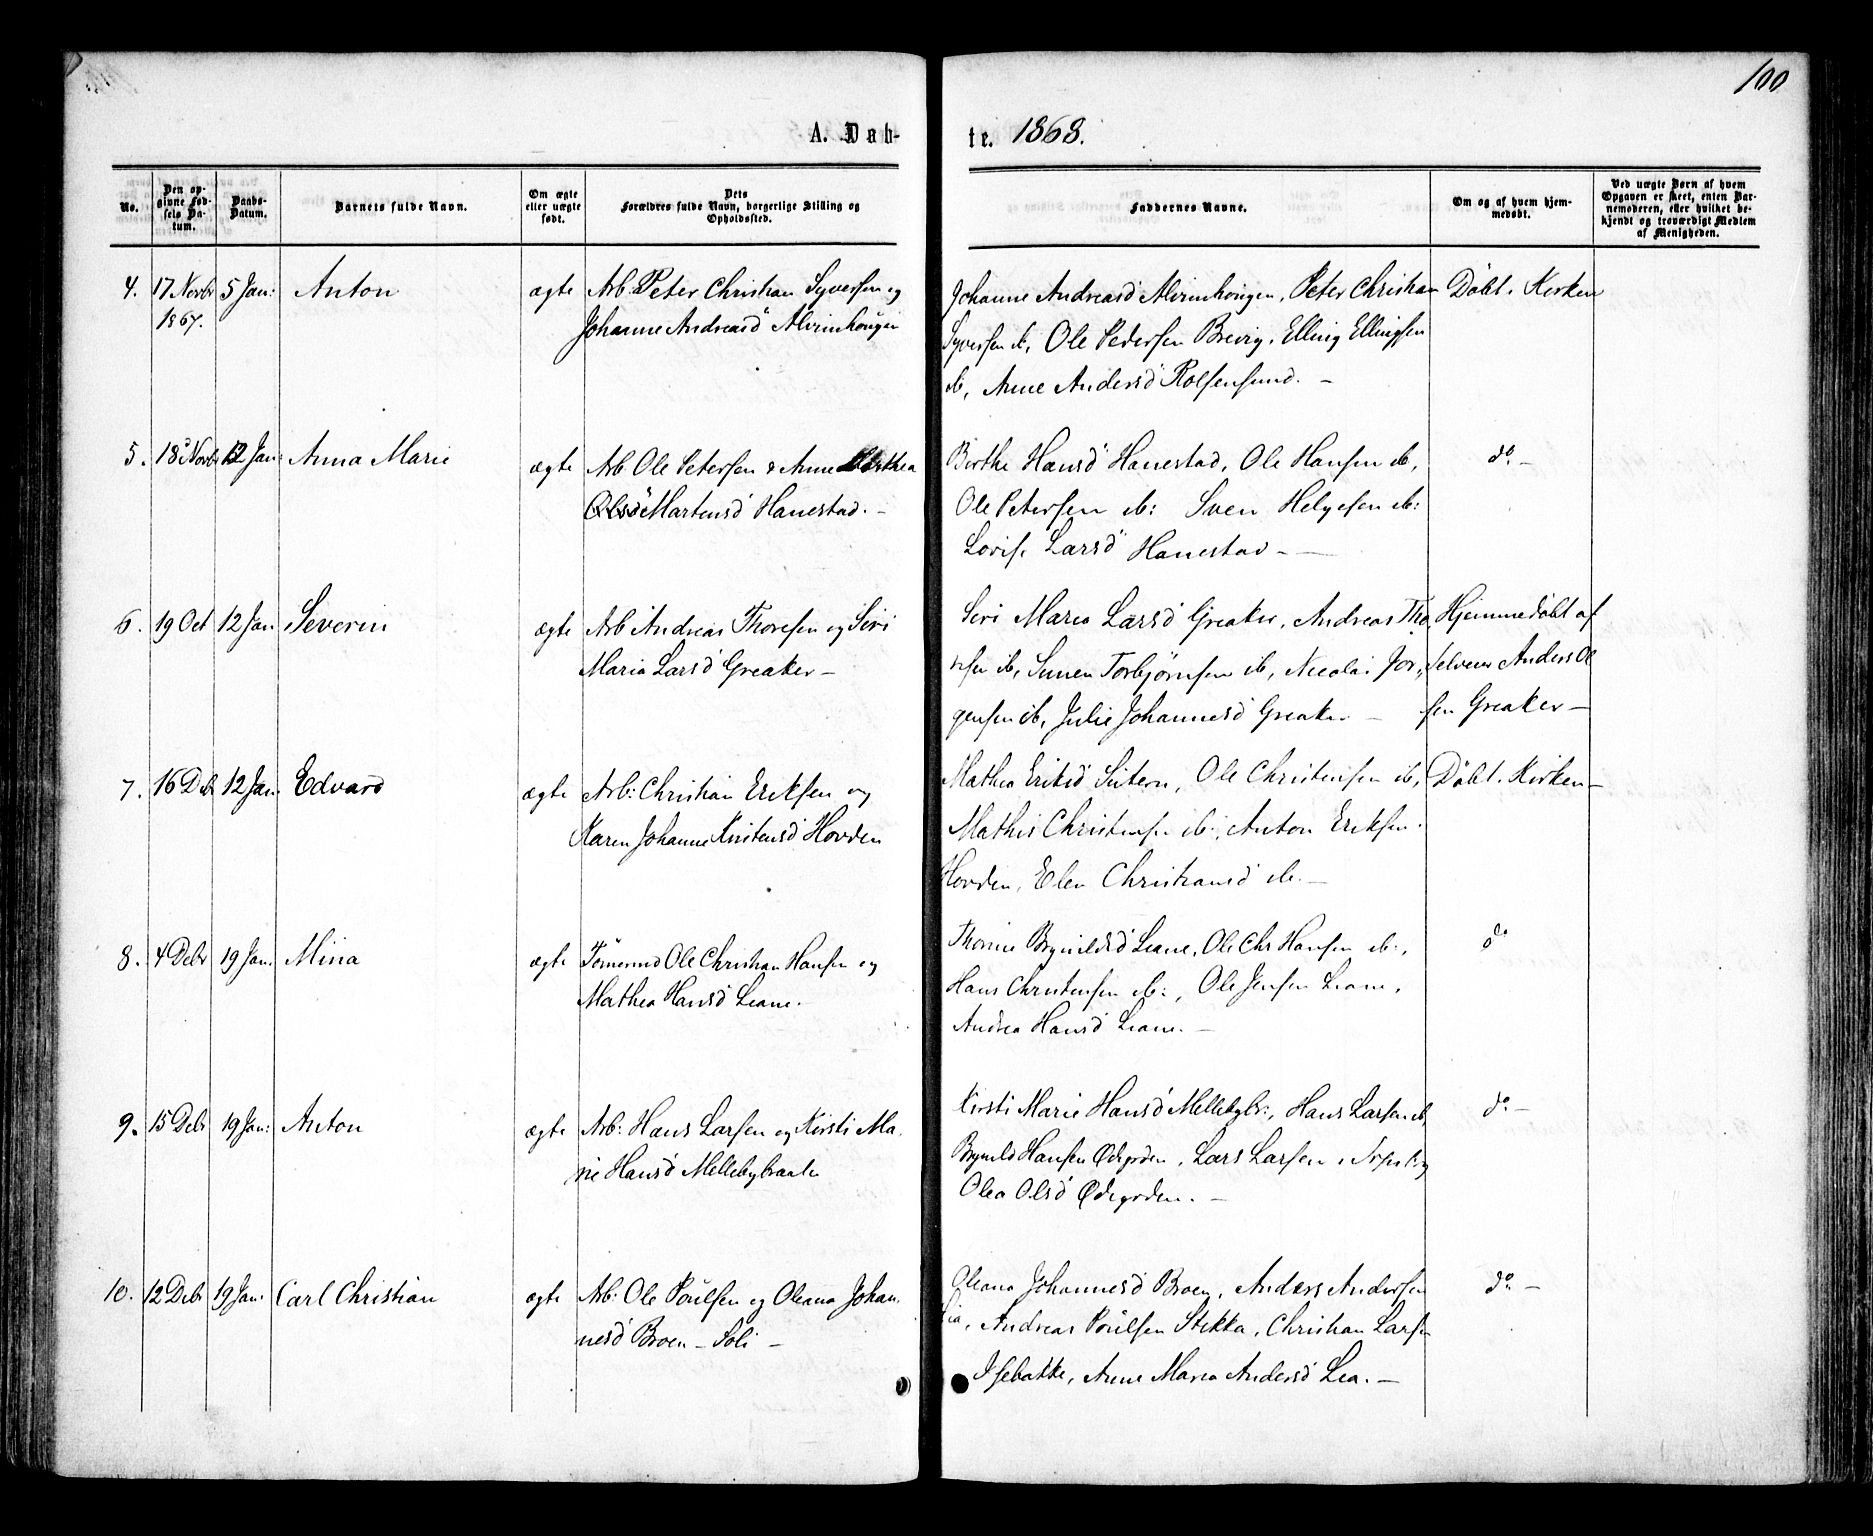 100
A. Døb- te. 1868.
No.
Den op-
givne Fød-
sels Da-
tum.
Daabs-
Datum.
Barnets fulde Navn.
Om ægte
eller uægte
født.
Dets
Forældres fulde Navn, borgerlige Stilling og
Opholdssted.
Faddernes Navne.
Om og af hvem hjem-
medøbt.
Ved uægte Børn af hvem
Opgaven er skeet, enten Bar-
nemoderen, eller hvilket be-
kjendt og troværdigt Medlem
af Menigheden.
4. 17 Novbr 5 Jan: Anton ægte Arb: Peter Christian Syversen og
1867. Johanne Andreasd Alvimhougen
Johanne Andreasd Alvimhougen, Peter Christian Døbt. Kirken
Syversen ib, Ole Pedersen Brevig, Elling Ellingsen
ib, Anne Andersd Rolfsensund. –
5. 18 Novbr 12 Jan: Anna Marie ægte Arb Ole Petersen & Anne
Olsd Martensd Hanestad. –
Berthe Hansd Hanestad, Ole Hansen ib, do. –
Ole Petersen ib: Sven Helgesen ib:
Lovise Larsd Hanestad –
6. 19 Oct 12 Jan Severin ægte Arb Andreas Thoresen og Siri
Maria Larsd Greaker –
Siri Maria Larsd Greaker, Andreas Tho- Hjemmedøbt af
resen ib, Simen Torbjørnsen ib, Nicolai Jør- Anders Ol
gensen ib, Julie Johannesd Greaker – sen Greaker –
7. 16 Dcb 12 Jan. Edvard ægte Arb: Christian Eriksen og
Karen Johanne Kristensd Hovden
Mathea Eriksd, Ole Christensen ib, Døbt. Kirken –
Mathis Christensen ib:, Anton Eriksen.
Hovden, Elen Christiansd ib. –
8. 4 Debr 19 Jan. Mina ægte Tømermd Ole Christian Hansen og
Mathea Hansd Leane.
Thorine Brynildsd Leane, Ole Chr Hansen ib:, do
Hans Christensen ib:, Ole Jensen Leane,
Andrea Hansd Leane. –
9. 15 Debr 19 Jan: Anton ægte Arb: Hans Larsen og Kirsti Ma-
rie Hansd Mellebybraate
Kirsti Marie Hansd Mellebybr:, Hans Larsen ib, do –
Brynild Hansen Ødegrden, Lars Larsen,
Olea Olsd Ødegrden. –
10. 12 Debr 19 Jan. Carl Christian ægte Arb: Ole Poulsen og Oleana Johan-
nesd Broen – Soli –
Oleana Johannesd Broen, Anders Andersen do –
Lia, Andreas Poulsen Stikka, Christian Larsen
Isebakke, Anne Maria Andersd Lea. –